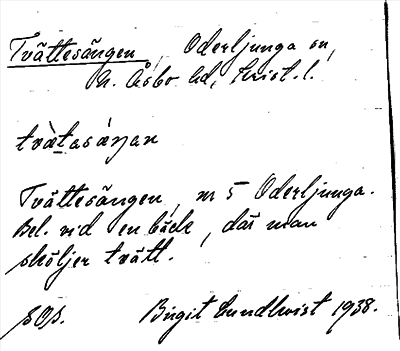 Tvättesängen, Oderljunga sn,
N. Åsbo hd, Krist. l.
tvætasæŋan
Tvättesängen, nr 5 Oderljunga.
Bel. vid en bäck, där man
sköljer tvätt.
SOS. Birgit Lundkvist 1938.